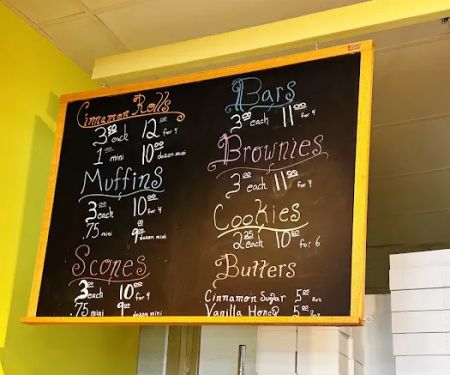 Cinnamon Rolls
3⁵⁰ each 12⁰⁰ for 4
1⁰⁰ mini 10⁰⁰ dozen mini
Muffins
3⁰⁰ each 10⁰⁰ for 4
.75 mini 9⁰⁰ dozen mini
Scones
3⁰⁰ each 10⁰⁰ for 4
.75 mini 9⁰⁰ dozen mini
Bars
3⁰⁰ each 11⁰⁰ for 4
Brownies
3⁰⁰ each 11⁰⁰ for 4
Cookies
2²⁵ each 10⁰⁰ for 6
Butters
Cinnamon Sugar 5⁰⁰ 8oz
Vanilla Honey 5⁰⁰ 8oz